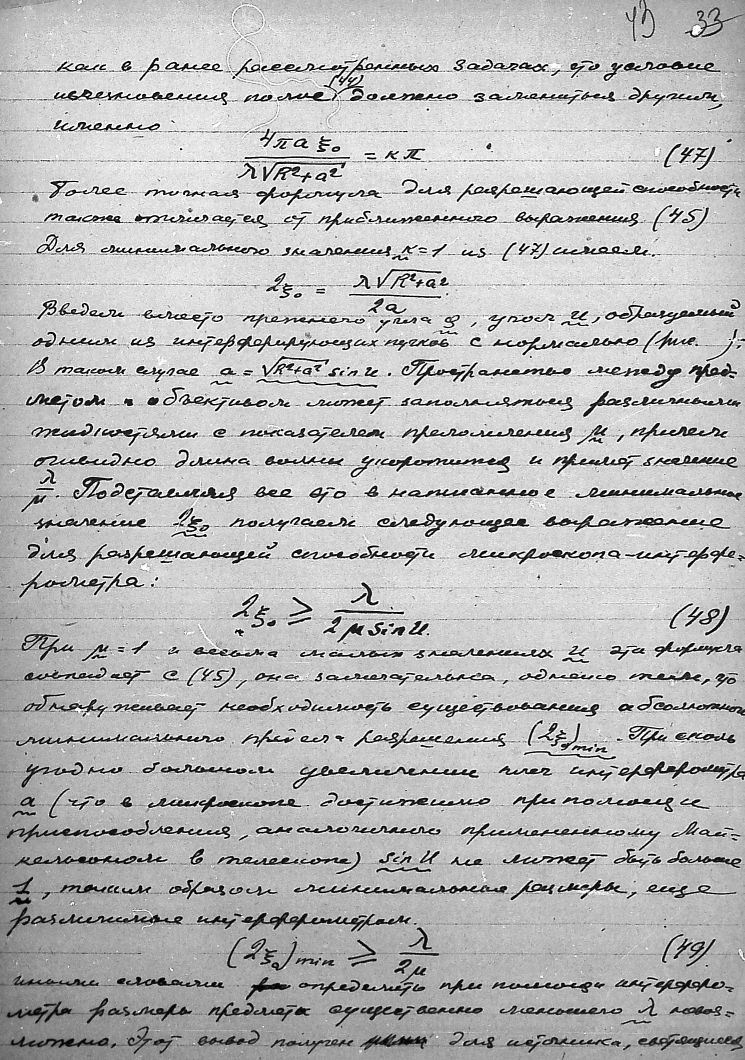 43 33
как в ранее рассмотренных задачах, это условие
исчезновения полос (44) должно замениться другим,
именно
4πa ξ₀ / λ√(R²+a²) = кπ (47)
Более точная формула для разрешающей способности
также отличается от приближенного выражения (45)
Для минимального значения к=1 из (47) имеем.
2ξ₀ = λ√(R²+a²) / 2a
Введем вместо прежнего угла φ, угол u, образуемый
одним из интерферирующих пучков с нормалью (рис. ).
В таком случае a = √(R²+a²) sin u. Пространство между пред-
метом и объективом может заполняться различными
жидкостями с показателем преломления μ, причем
очевидно длина волны укоротится и примет значение
λ/μ. Подставляя все это в написанное минимальное
значение 2ξ₀ получаем следующее выражение
для разрешающей способности микроскопа-интерфе-
рометра:
2ξ₀ ≥ λ / 2μ sin u. (48)
При μ=1 и весьма малых значениях u эта формула
совпадает с (45), она замечательна, однако тем, что
обнаруживает необходимость существования абсолютного
минимального предела разрешения (2ξ₀)min. При сколь
угодно большом увеличении плеч интерферометра
a (что в микроскопе достижимо при помощи
приспособления, аналогичного примененному Май-
кельсоном в телескопе) sin u не может быть больше
1, таким образом минимальные размеры, еще
различимые интерферометром.
(2ξ₀)min ≥ λ / 2μ (49)
иными словами определить при помощи интерферо-
метра размеры предмета существенно меньшего λ невоз-
можно. Этот вывод получен для источника, светящегося